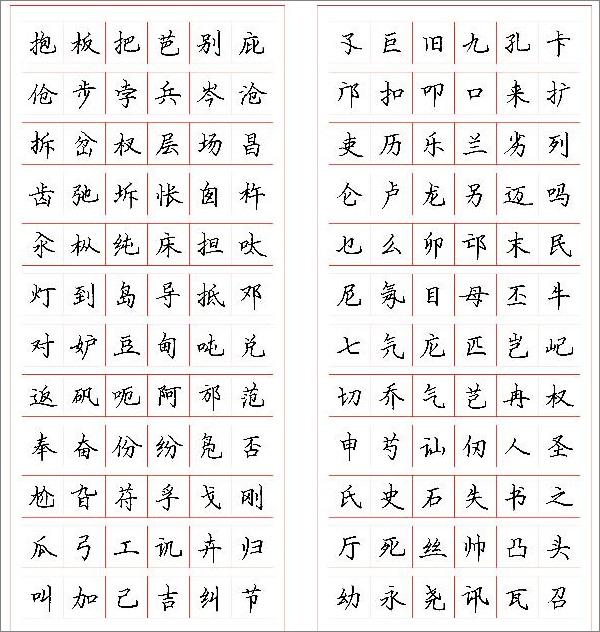 抱板把芭别庇
伧步孛兵岑沧
拆岔杈层场昌
齿弛坼怅囱杵
汆枞纯床担呔
灯到岛导抵邓
对妒豆甸吨兑
返矾呃阿邡范
奉奋份纷凫否
尬旮苻孚戈刚
瓜弓工讥卉归
叫加己吉纠节
巨旧九孔卡
邝扣叩口来扩
吏历乐兰劣列
仑卢龙另迈吗
乜么卯邙末民
尼目母丕牛
七氕庀匹岂屺
切乔气芑冉权
申芍讪仞人圣
氏史石失书之
厅死丝帅凸头
幼永尧讯瓦召